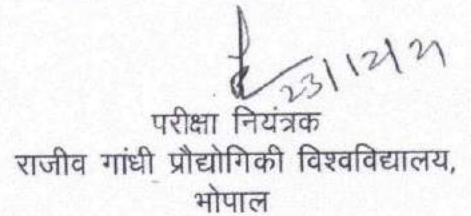 23/12/21
परीक्षा नियंत्रक
राजीव गांधी प्रौद्योगिकी विश्वविद्यालय,
भोपाल